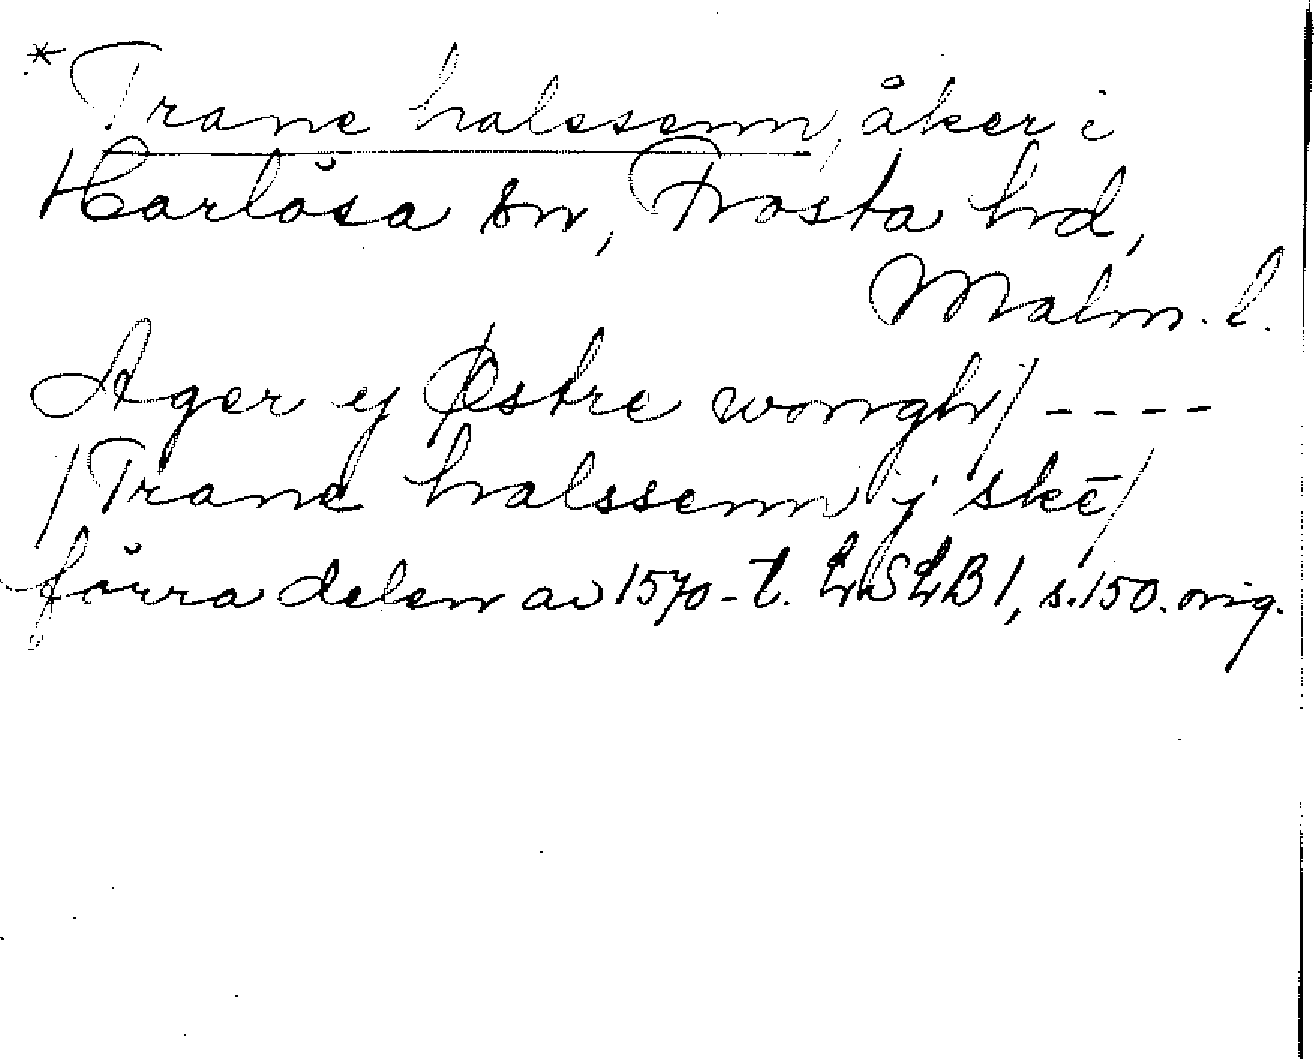 *Trane halssenn, åker i
Harlösa sn, Frosta hd,
Malm. l.
Ager y Østre wongh/ ----
/Trane halssenn y skē/
förra delen av 1570-t. LSLB 1, s. 150. orig.